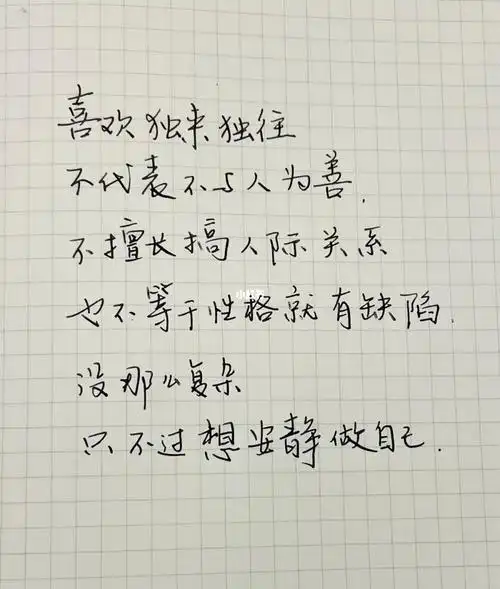 喜欢独来独往
不代表不与人为善.
不擅长搞人际关系
也不等于性格就有缺陷.
没那么复杂
只不过想安静做自己.